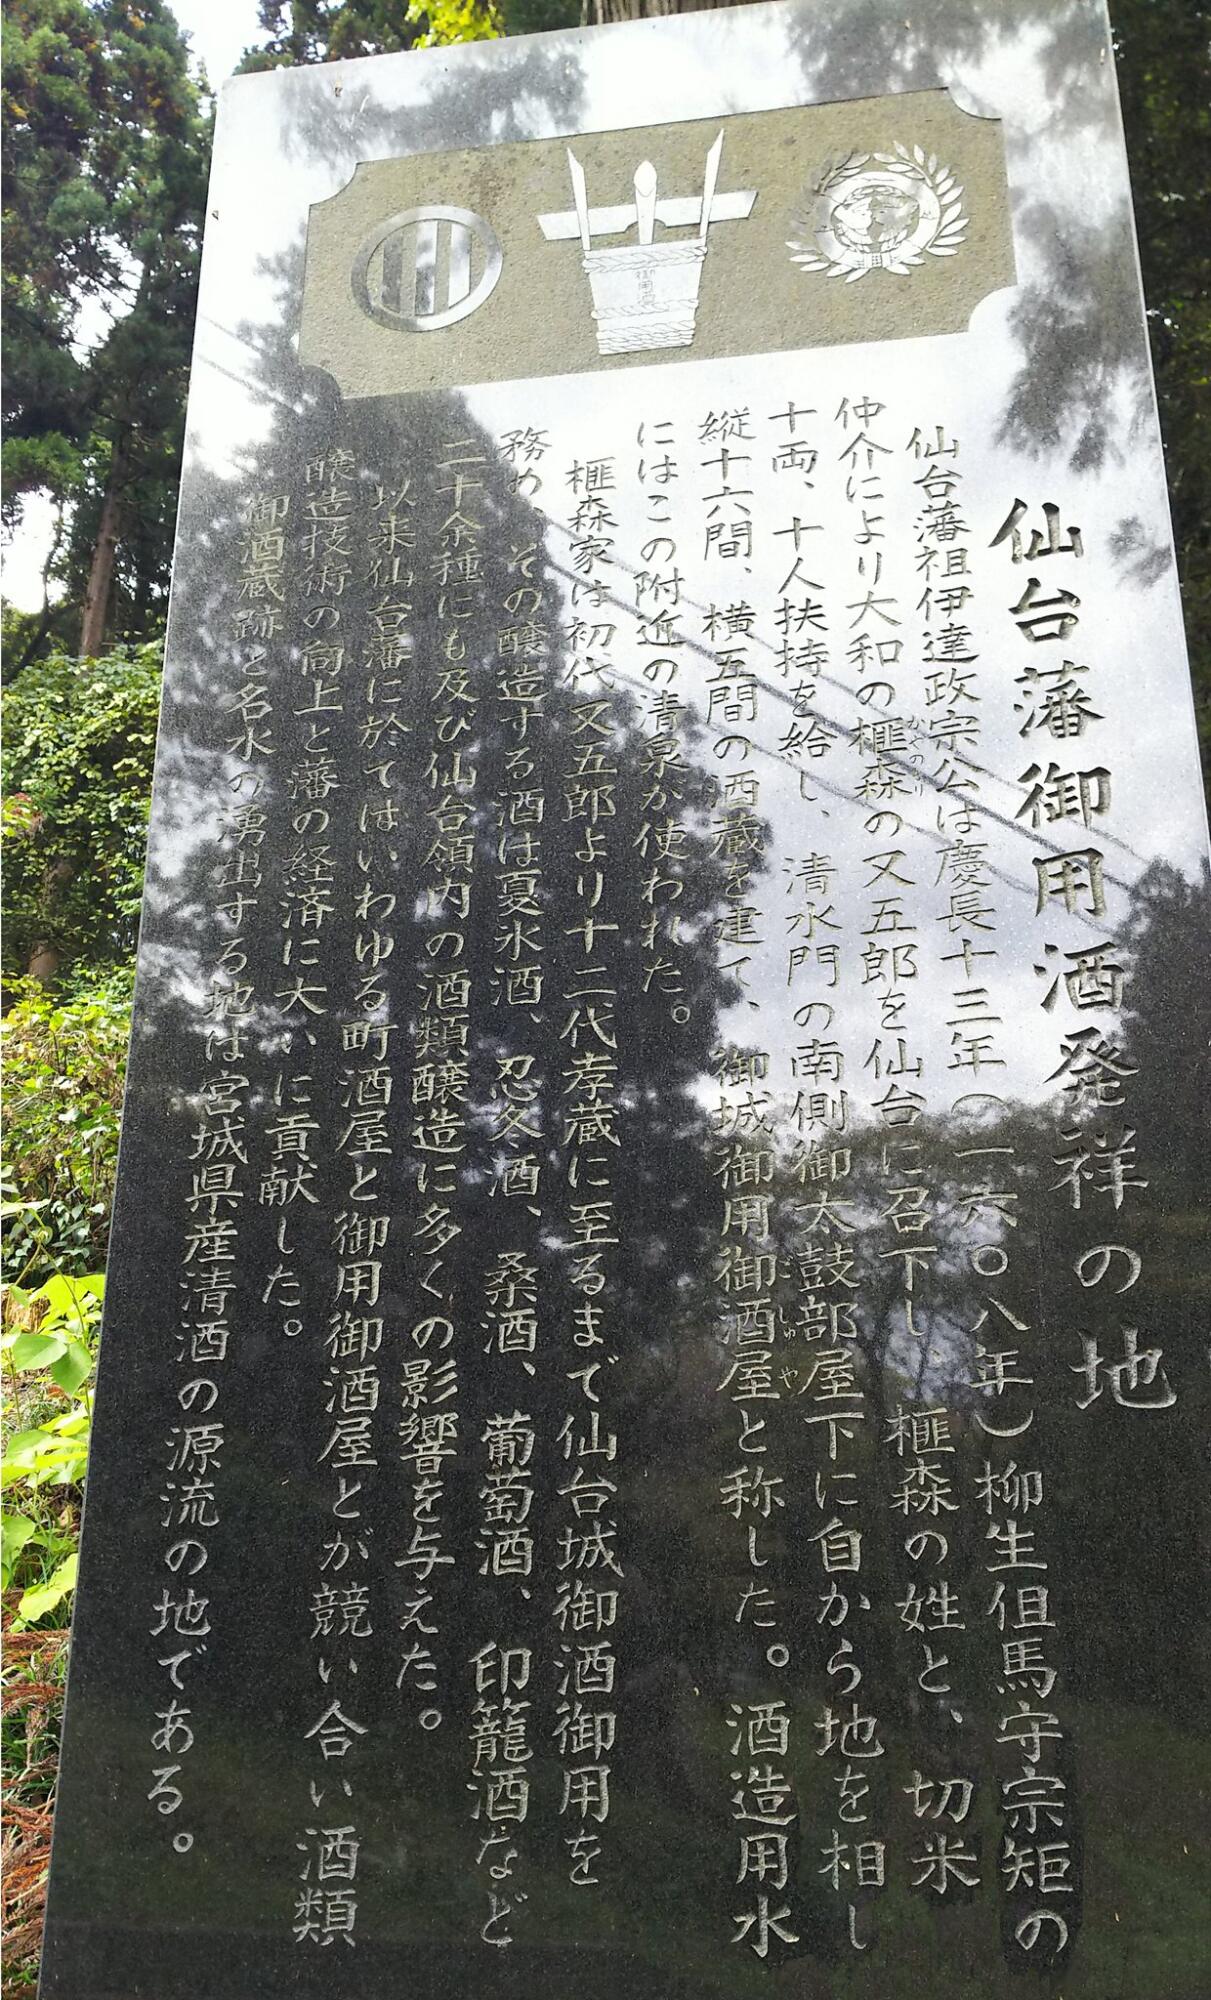 御用酒
仙台藩御用酒発祥の地
仙台藩祖伊達政宗公は慶長十三年（一六〇八年）柳生但馬守宗矩の
仲介により大和の榧森の又五郎を仙台に召下し、榧森の姓と、切米
かやのもり
十両、十人扶持を給し、清水門の南側御太鼓部屋下に自から地を相し
縦十六間、横五間の酒蔵を建て、御城御用御酒屋と称した。酒造用水
ごしゅや
にはこの附近の清泉が使われた。
榧森家は初代又五郎より十二代孝蔵に至るまで仙台城御酒御用を
務め、その醸造する酒は夏氷酒、忍冬酒、桑酒、葡萄酒、印籠酒など
二十余種にも及び仙台領内の酒類醸造に多くの影響を与えた。
以来仙台藩に於てはいわゆる町酒屋と御用御酒屋とが競い合い酒類
醸造技術の向上と藩の経済に大いに貢献した。
御酒蔵跡と名水の湧出する地は宮城県産清酒の源流の地である。